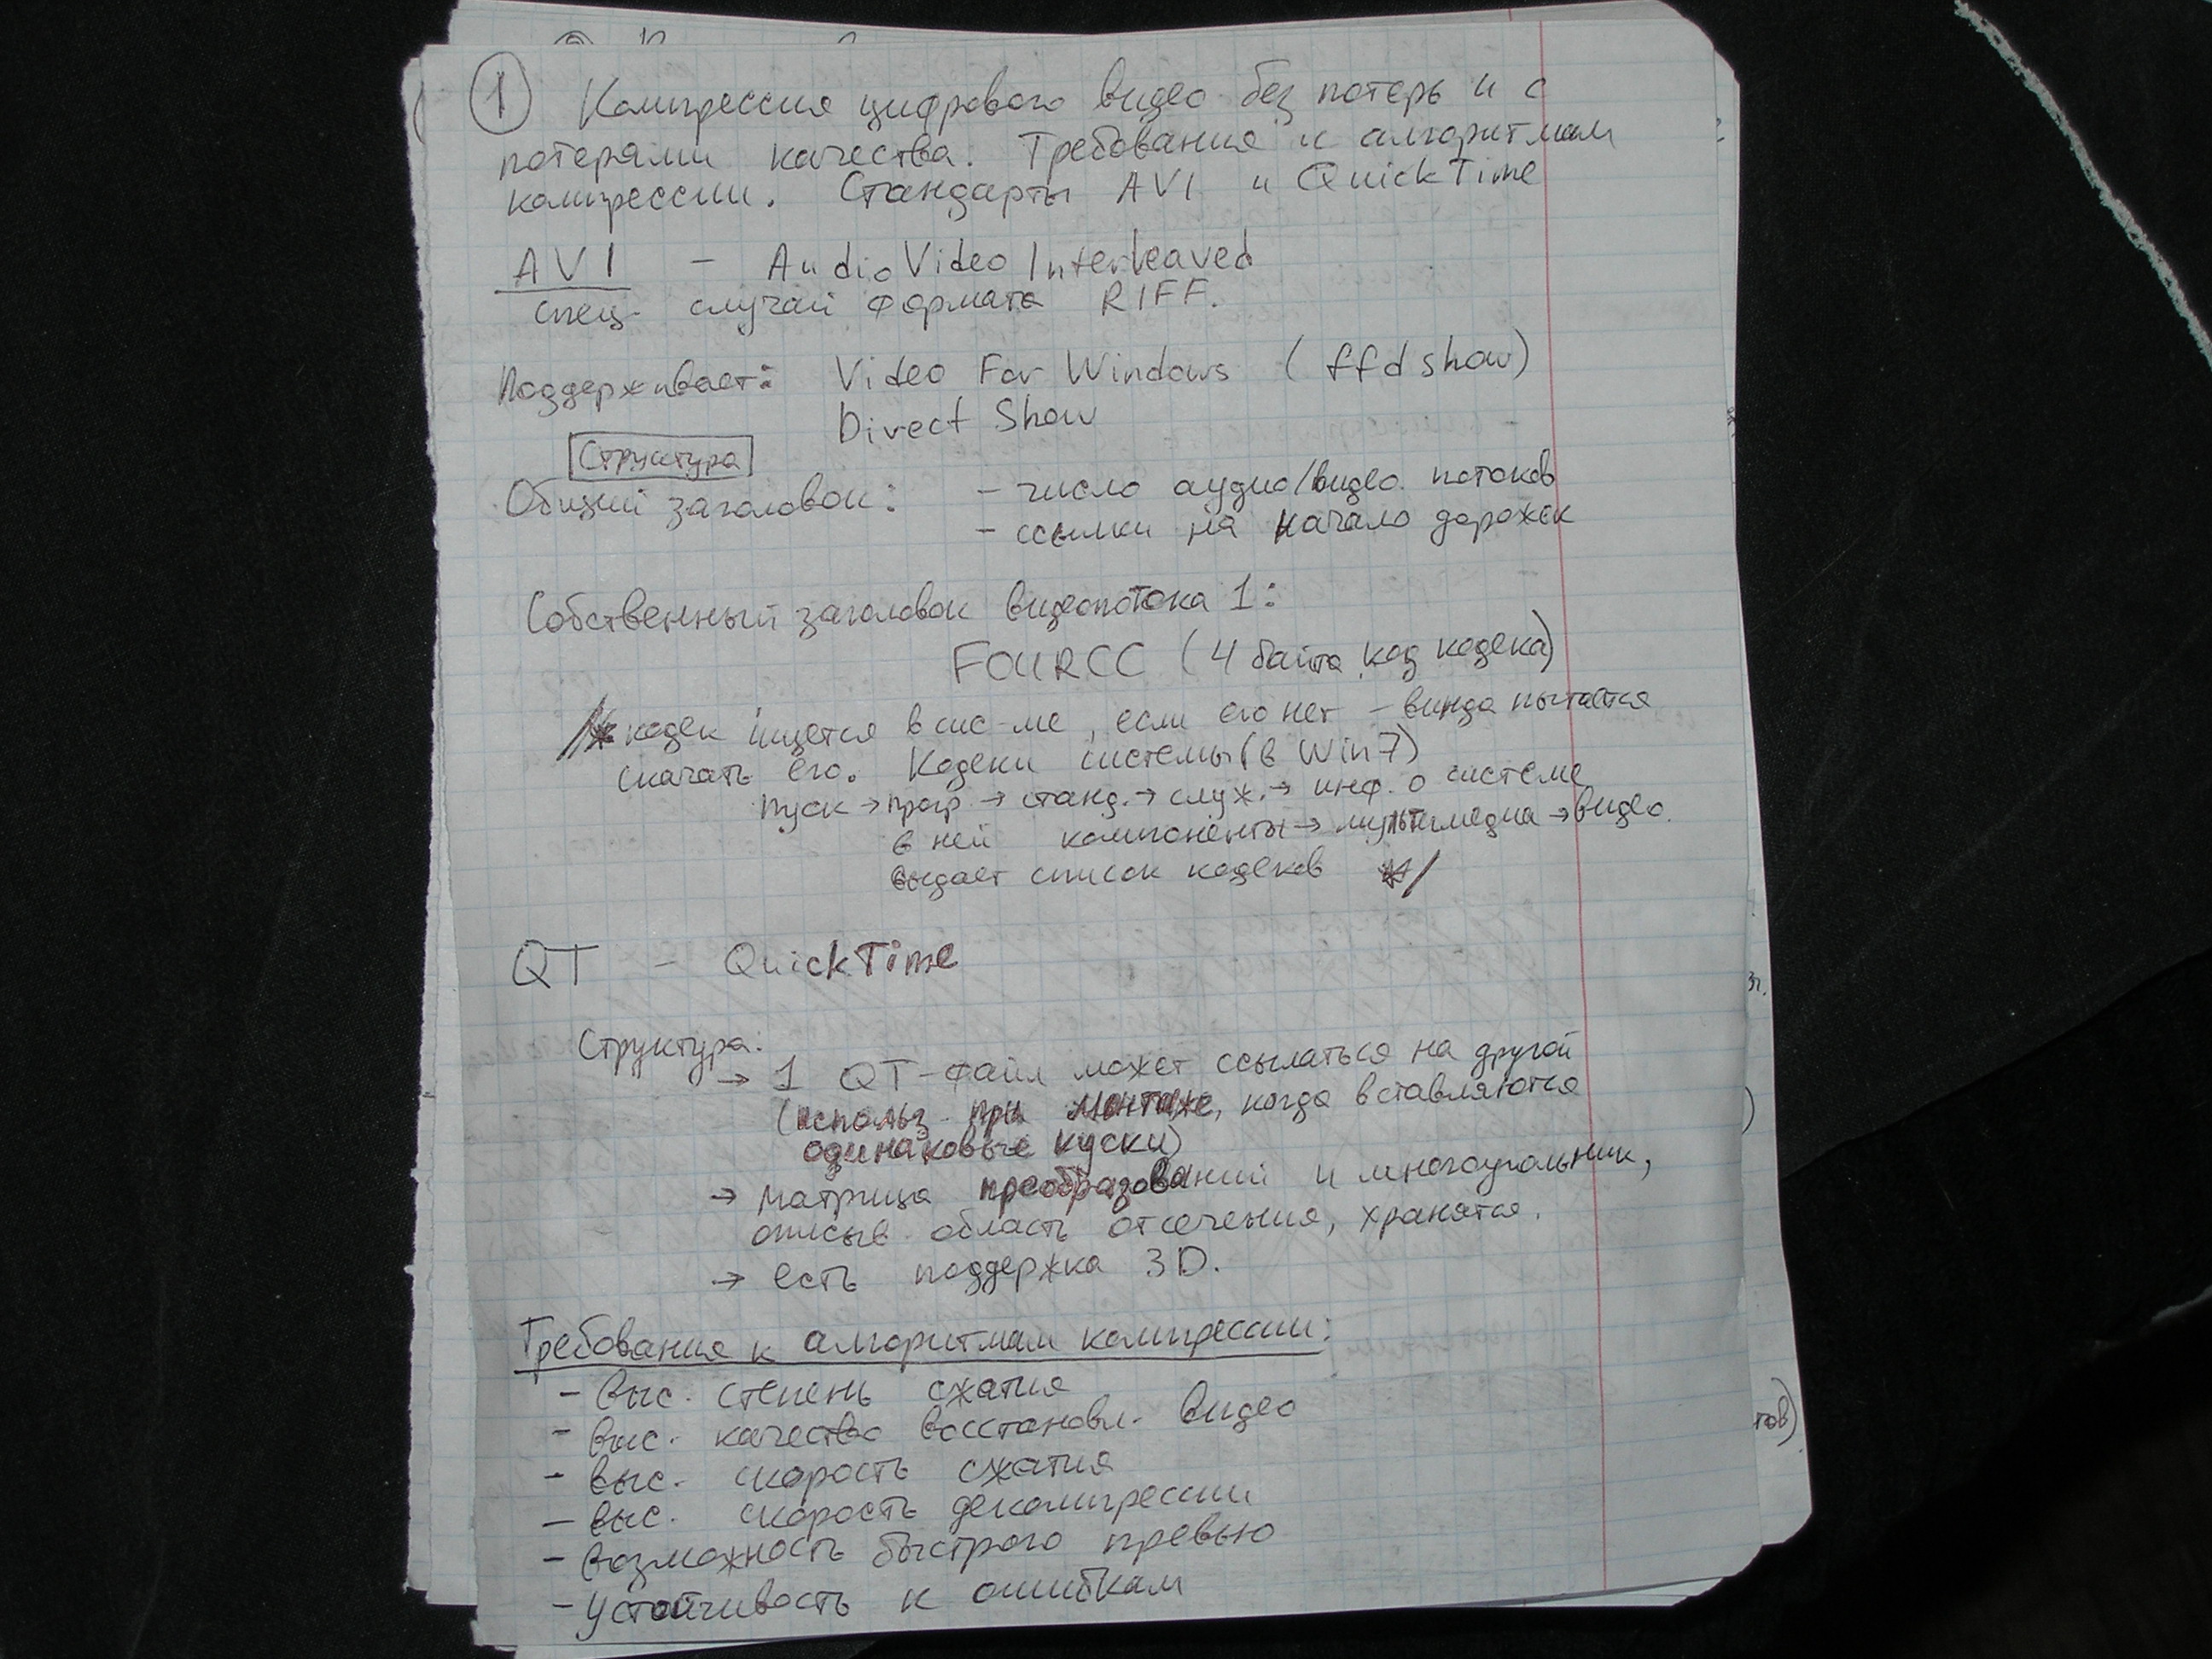 ① Компрессия цифрового видео без потерь и с
потерями качества. Требования к алгоритмам
компрессии. Стандарты AVI и QuickTime
AVI - Audio Video Interleaved
спец. случай формата RIFF.
Поддерживает: Video For Windows (ffdshow)
Direct Show
Структура
Общий заголовок: - число аудио/видео потоков
- ссылки на начало дорожек
Собственный заголовок видеопотока 1:
FOURCC (4 байта код кодека)
/* кодек ищется в сис-ме, если его нет - винда пытается
скачать его. Кодеки системы (в Win7)
пуск → прогр. → станд. → служ. → инф. о системе
в ней компоненты → мультимедиа → видео.
выдает список кодеков */
QT - QuickTime
Структура:
→ 1 QT-файл может ссылаться на другой
(использ. при монтаже, когда вставляются
одинаковые куски)
→ матрица преобразований и многоугольник,
описыв. область отсечения, хранятся.
→ есть поддержка 3D.
Требования к алгоритмам компрессии:
- выс. степень сжатия
- выс. качество восстановл. видео
- выс. скорость сжатия
- выс. скорость декомпрессии
- возможность быстрого превью
- устойчивость к ошибкам
тов)